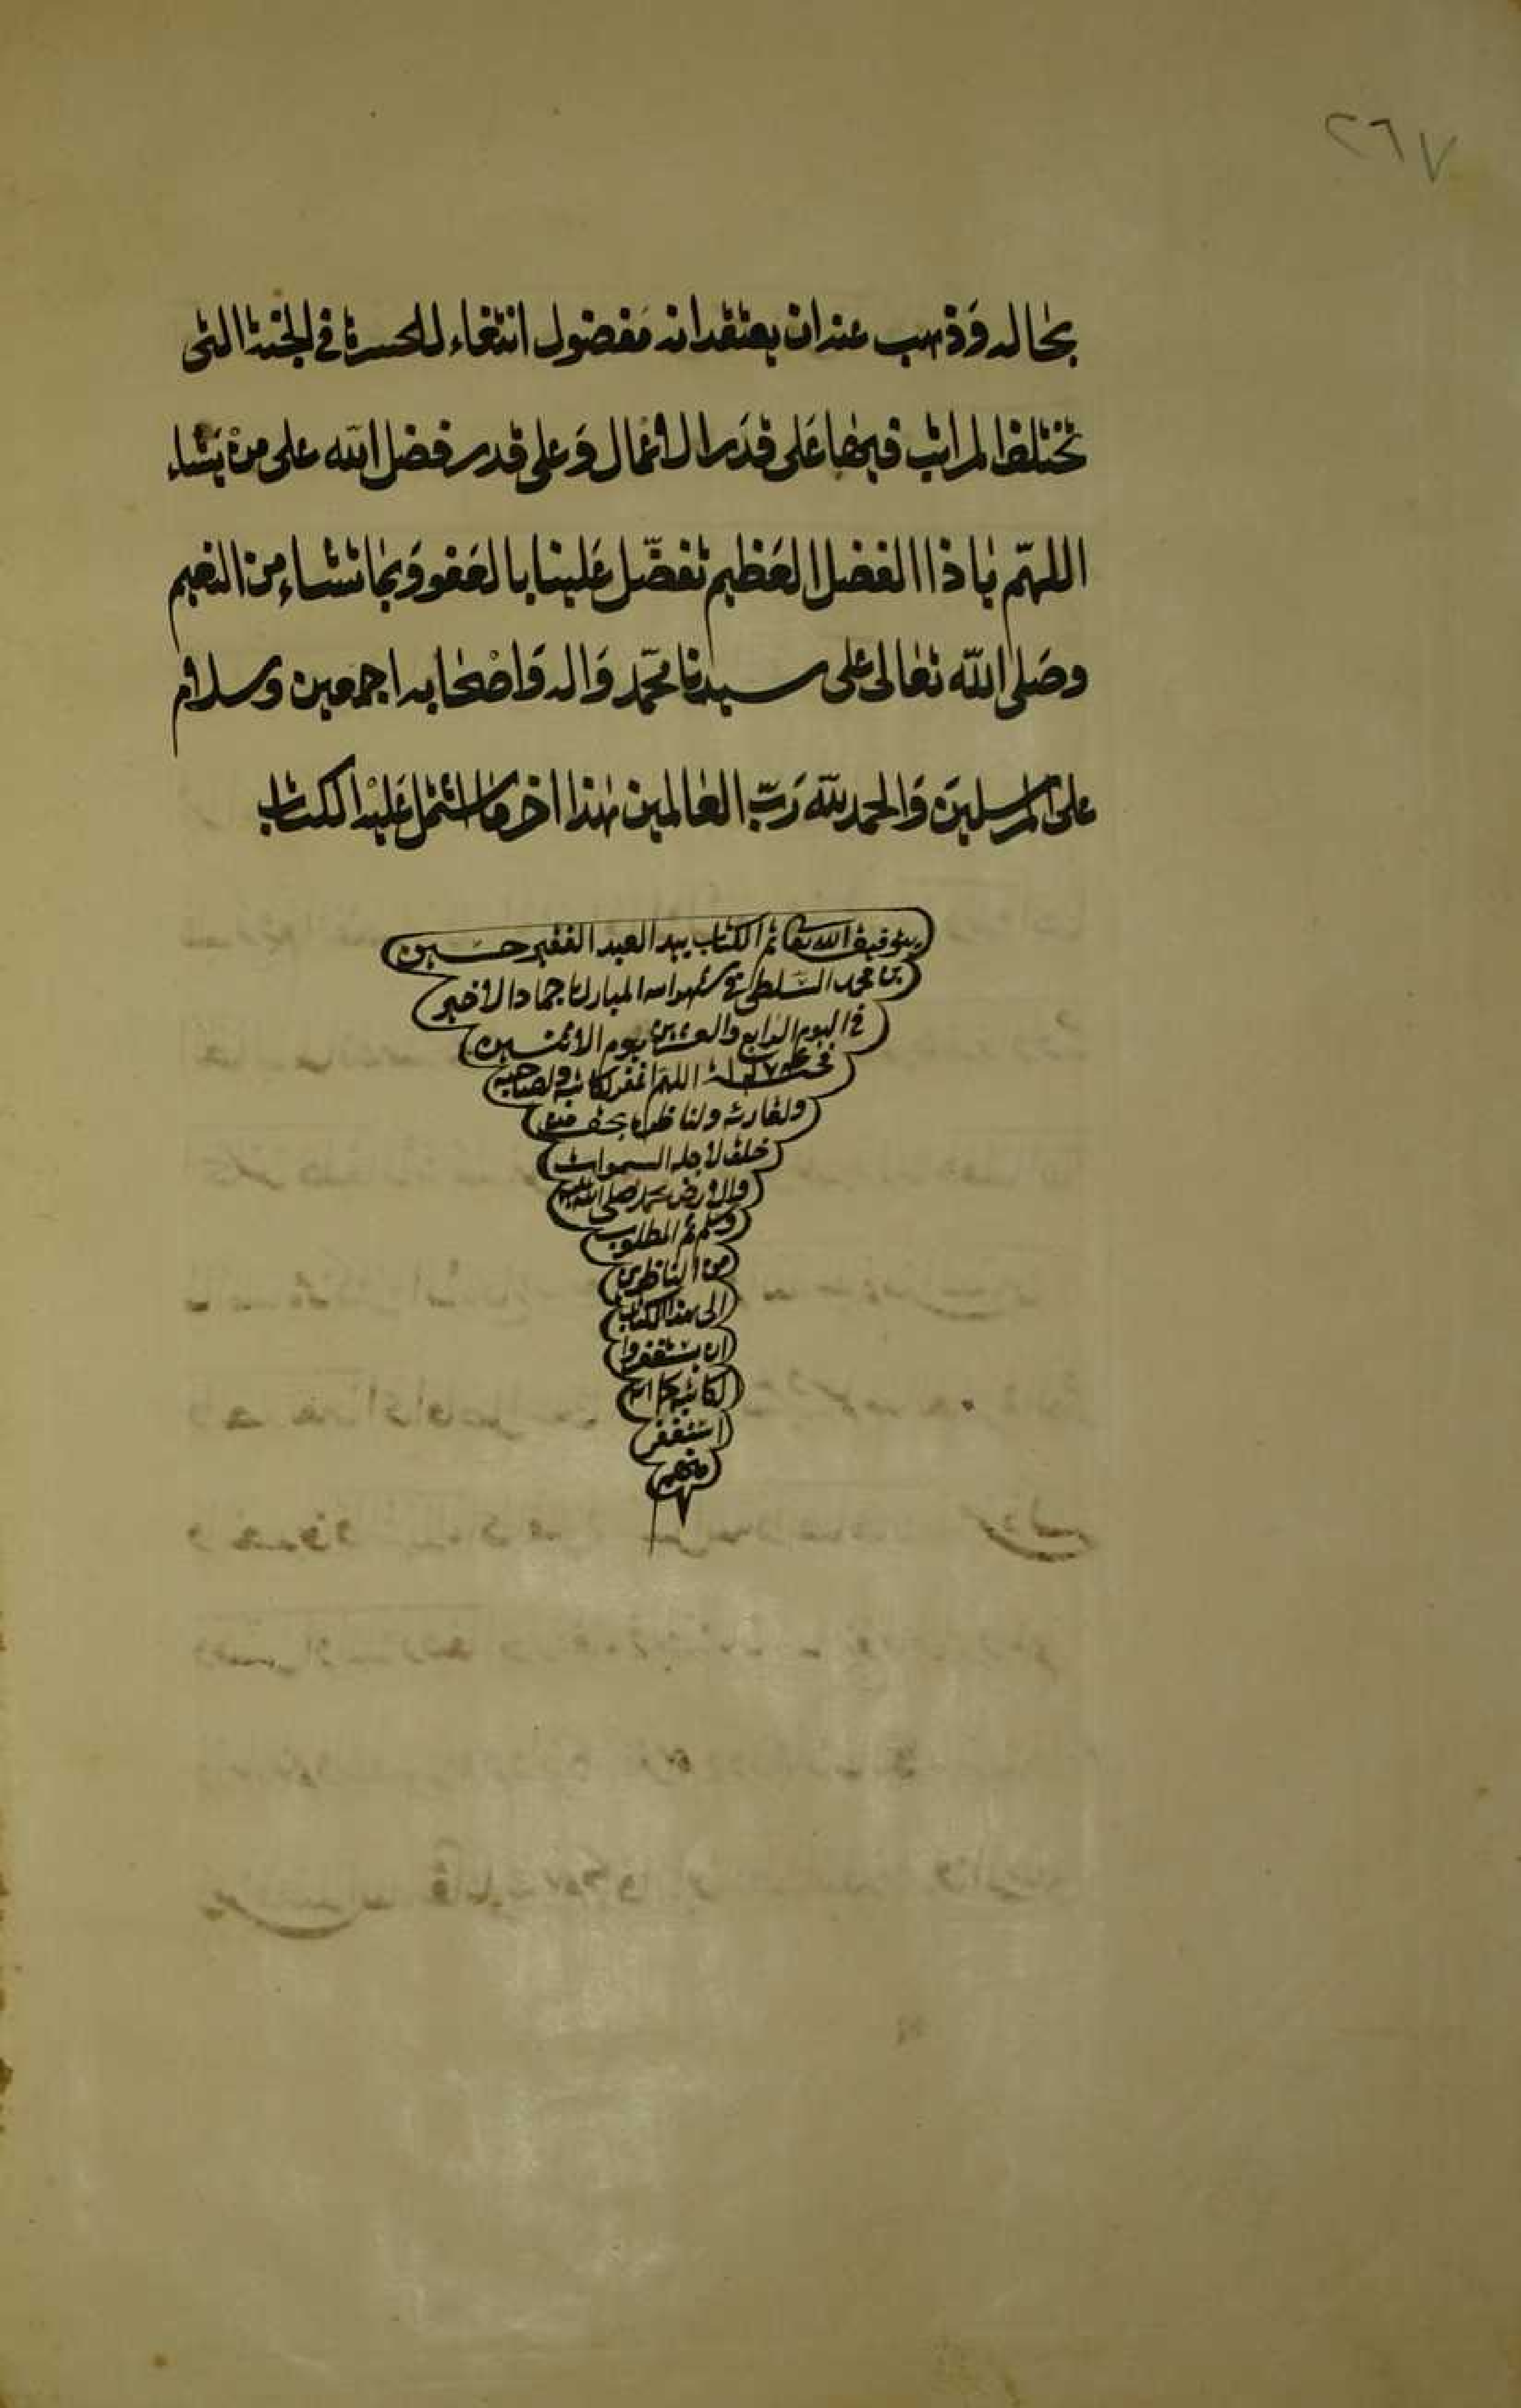 ٢٦٧
بحاله وذهب عنه ان يعتقد انه مفضول انتفاء للحسرة في الجنة التي
تختلف المراتب فيها على قدر الاعمال وعلى قدر فضل الله على من يشاء
اللهم يا ذا الفضل العظيم تفضل علينا بالعفو وبما تشاء من النعيم
وصلى الله تعالى على سيدنا محمد واله واصحابه اجمعين وسلام
على المرسلين والحمد لله رب العالمين هذا اخر ما اشتمل عليه الكتاب
بتوفيق الله تعا تم الكتاب بيد العبد الفقير حسين
بن محمد في شهر الله المبارك جماد الاخير
في اليوم الرابع والعشرين يوم الاثنين
اللهم اغفر لكاتبه ولصاحبه
ولقارئه ولناظره بحق من
خلق لاجله السموات
والارض محمد صلى الله عليه
وسلم ثم المطلوب
من الناظرين
الى هذا الكتاب
ان يستغفروا
لكاتبه كما انه
استغفر
منهم